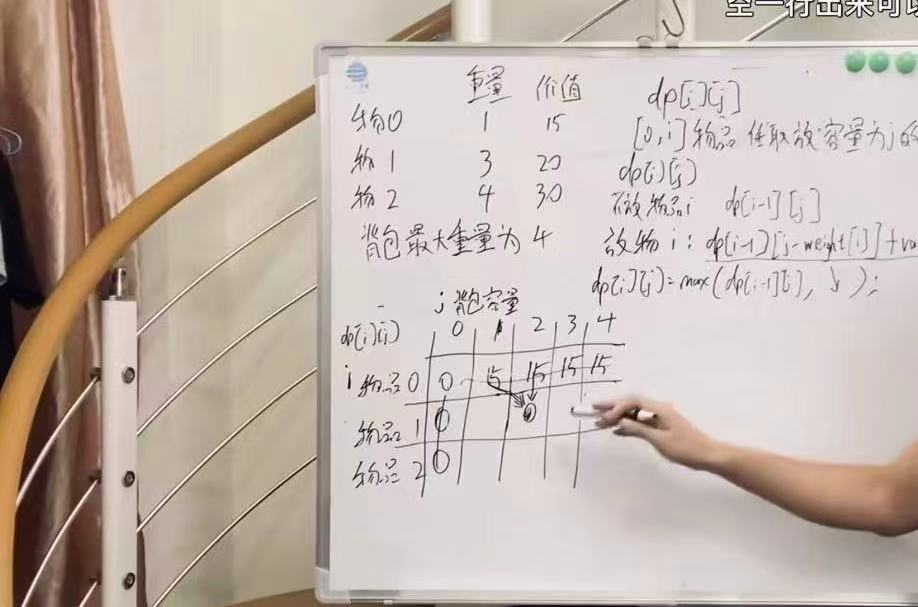 空一行出来可以
重量 价值
物0 1 15
物1 3 20
物2 4 30
背包最大重量为4
dp[i][j]
[0,i]物品任取放容量为j的
dp[i][j]
不放物品i dp[i-1][j]
放物i: dp[i-1][j-weight[i]]+va
dp[i][j]=max(dp[i-1][j], ↓);
j 背包容量
dp[i][j] 0 1 2 3 4
i 物品0 0 15 15 15 15
物品1 0 0
物品2 0